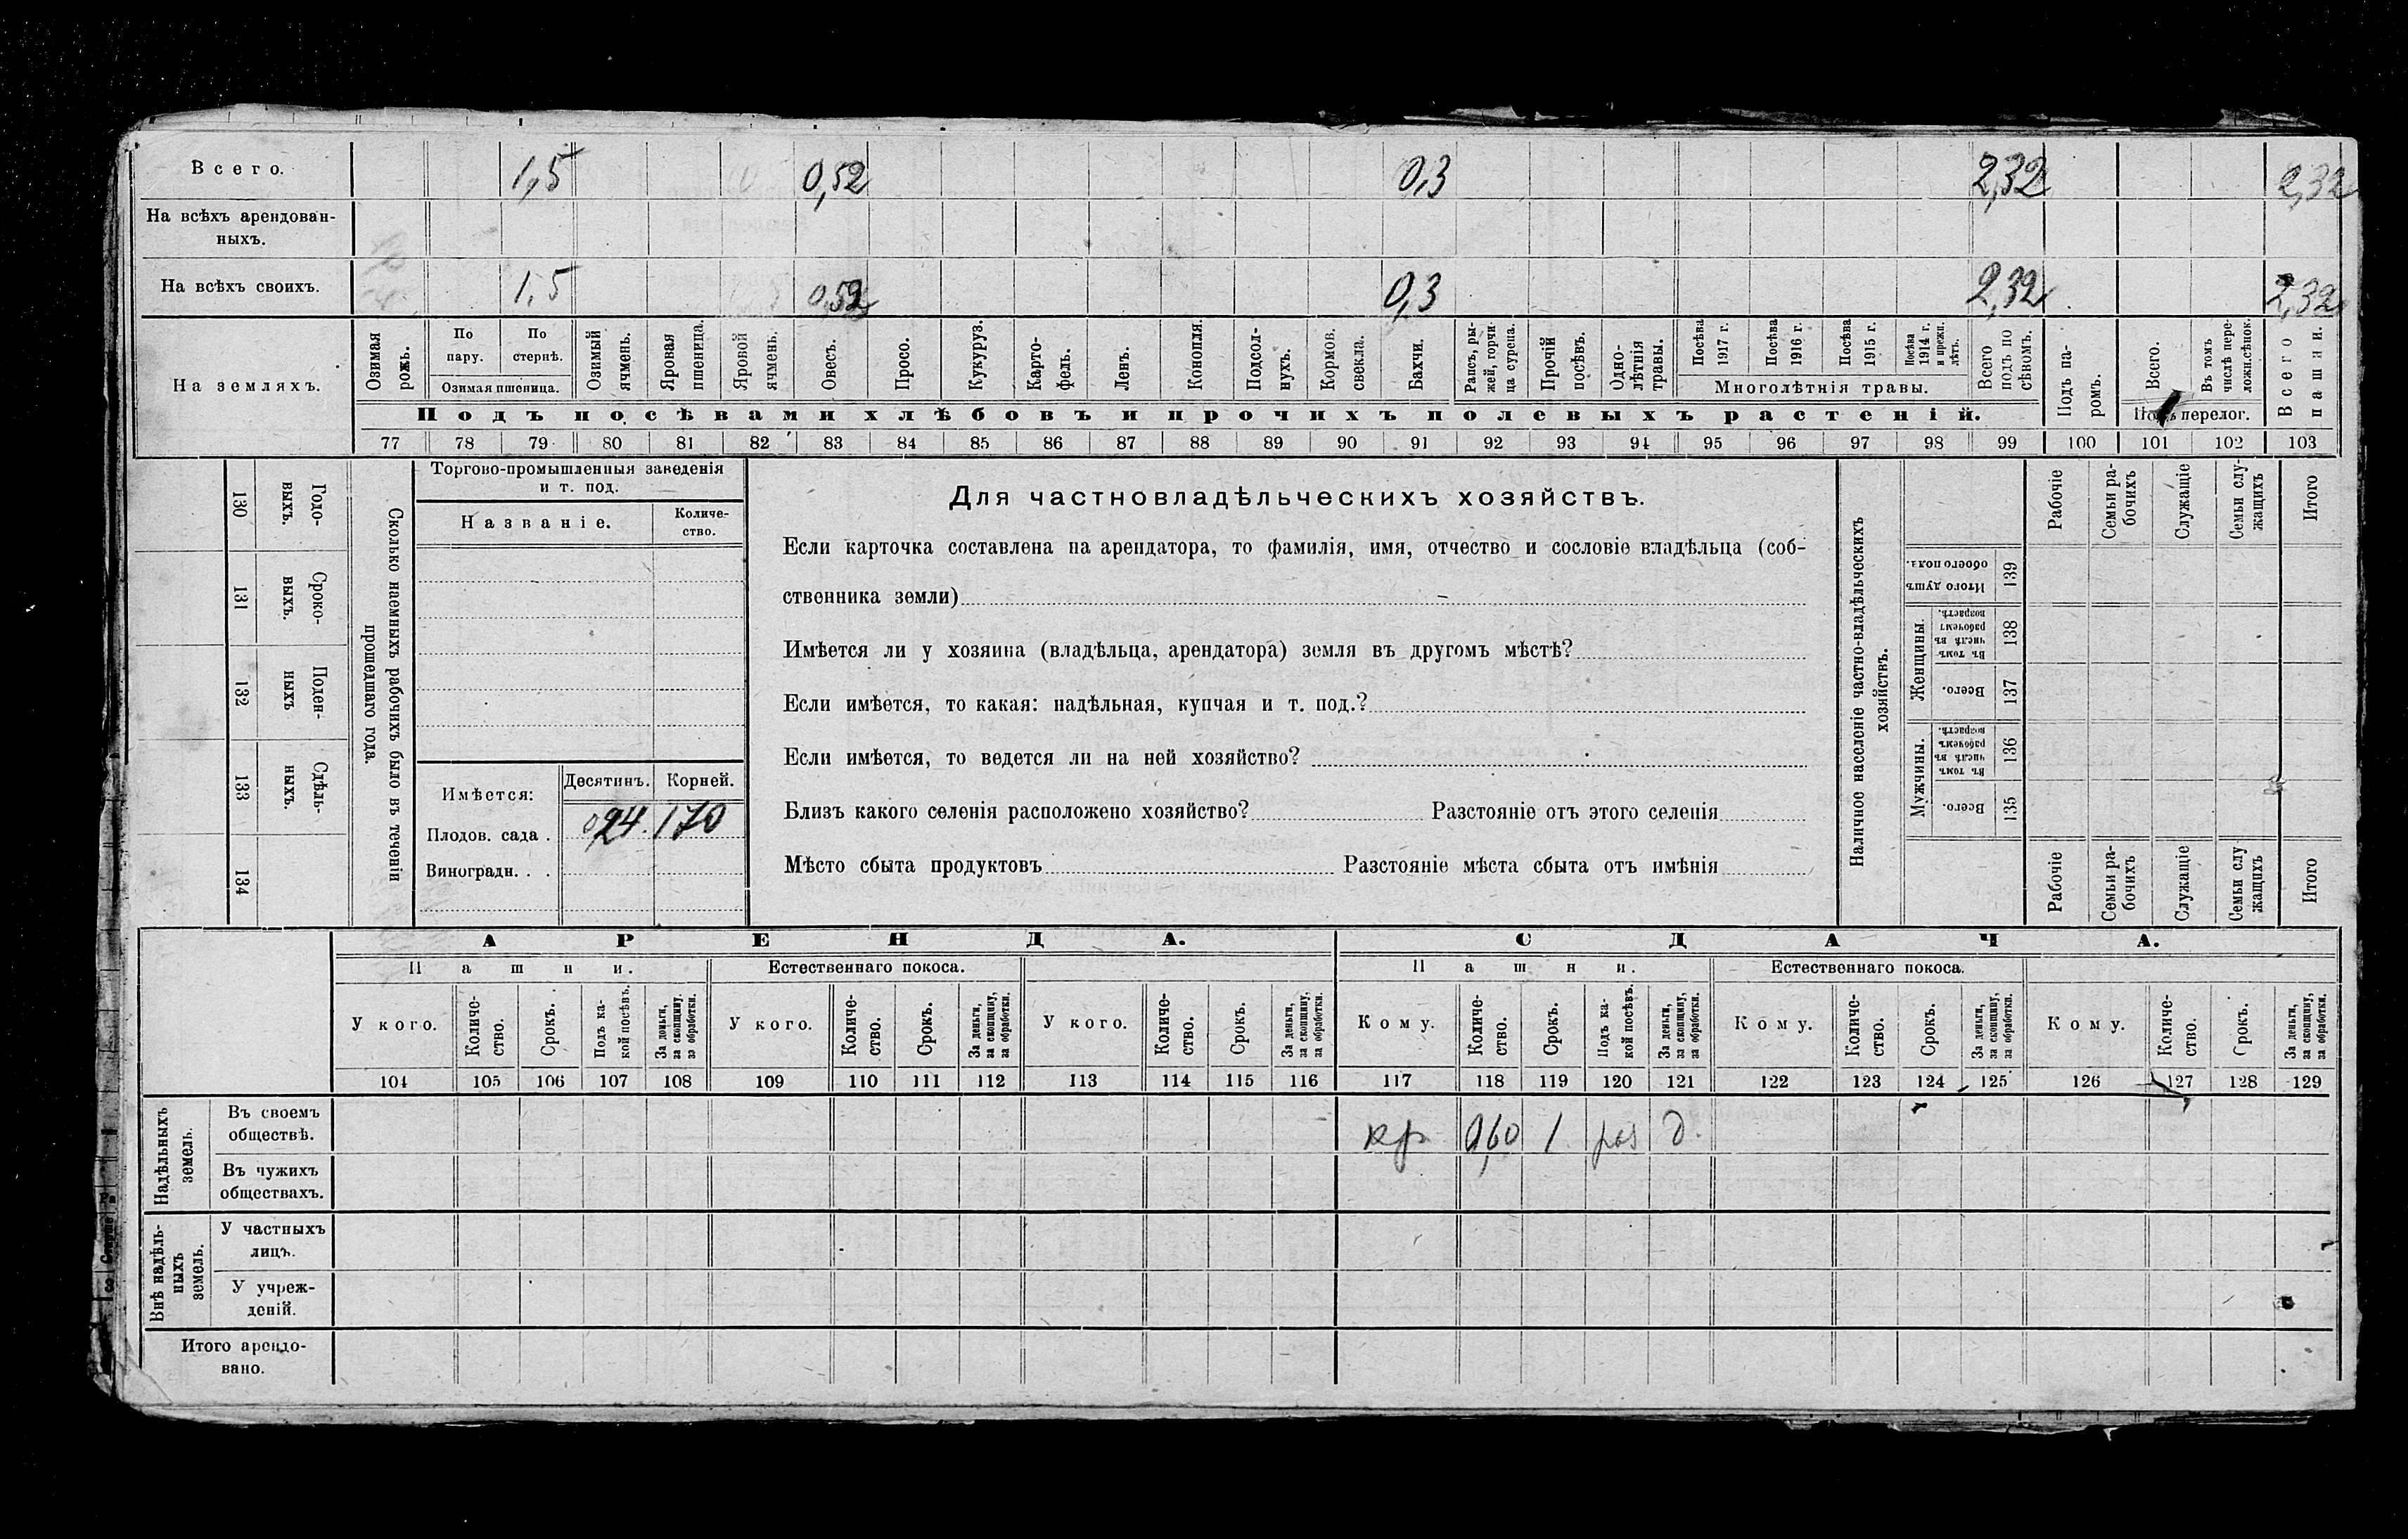 Всего. 1,5 0,52 0,3 2,32 2,32
На всѣхъ арендован-
ныхъ.
На всѣхъ своихъ. 1,5 0,52 0,3 2,32 2,32
На земляхъ.
Озимая рожь.
По пару.
По стернѣ.
Озимая пшеница.
Озимый ячмень.
Яровая пшеница.
Яровой ячмень.
Овесъ.
Просо.
Кукуруз.
Карто-
фель.
Ленъ.
Конопля.
Подсол-
нухъ.
Кормов.
свекла.
Бахчи.
Рапсъ, ры-
жей, горчи-
ца сурепа.
Прочій
посѣвъ.
Одно-
лѣтнія
травы.
Посѣва
1917 г.
Посѣва
1916 г.
Посѣва
1915 г.
Посѣва
1914 г.
и прежн.
лѣтъ.
Многолѣтнія травы.
Всего
подъ по
сѣвомъ.
Подъ посѣвами хлѣбовъ и прочихъ полевыхъ растеній.
Подъ па-
ромъ.
Всего.
Въ томъ
числѣ пере-
ложн.сѣнок.
Подъ перелог.
Всего
пашни.
77 78 79 80 81 82 83 84 85 86 87 88 89 90 91 92 93 94 95 96 97 98 99 100 101 102 103
130 Годо-
выхъ.
131 Сроко-
выхъ.
132 Поден-
ныхъ
133 Сдѣль-
ныхъ.
134
Сколько наемныхъ рабочихъ было въ теченіи
прошедшаго года.
Торгово-промышленныя заведенія
и т. под.
Названіе.
Количе-
ство.
Имѣется:
Десятинъ. Корней.
Плодов. сада . 0,24. 170
Виноградн. . .
Для частновладѣльческихъ хозяйствъ.
Если карточка составлена на арендатора, то фамилія, имя, отчество и сословіе владѣльца (соб-
ственника земли)
Имѣется ли у хозяина (владѣльца, арендатора) земля въ другомъ мѣстѣ?
Если имѣется, то какая: надѣльная, купчая и т. под.?
Если имѣется, то ведется ли на ней хозяйство?
Близъ какого селенія расположено хозяйство? Разстояніе отъ этого селенія
Мѣсто сбыта продуктовъ Разстояніе мѣста сбыта отъ имѣнія
Наличное населеніе частно-владѣльческихъ
хозяйствъ.
Рабочіе
Семьи ра-
бочихъ
Служащіе
Семьи слу-
жащихъ
Итого
Итого душъ
обоего пола. 139
Женщины.
Въ томъ
числѣ въ
рабочемъ
возрастѣ. 138
Всего. 137
Мужчины.
Въ томъ
числѣ въ
рабочемъ
возрастѣ. 136
Всего. 135
Рабочіе
Семьи ра-
бочихъ
Служащіе
Семьи слу
жащихъ
Итого
АРЕНДА. СДАЧА.
Пашни. Естественнаго покоса. Пашни. Естественнаго покоса.
У кого.
Количе-
ство.
Срокъ.
Подъ ка-
кой посѣвъ.
За деньги,
за скопщину,
за обработки.
У кого.
Количе-
ство.
Срокъ.
За деньги,
за скопщину,
за обработки.
У кого.
Количе-
ство.
Срокъ.
За деньги,
за скопщину,
за обработки.
Кому.
Количе-
ство.
Срокъ.
Подъ ка-
кой посѣвъ.
За деньги,
за скопщину,
за обработки.
Кому.
Количе-
ство.
Срокъ.
За деньги,
за скопщину,
за обработки.
Кому.
Количе-
ство.
Срокъ.
За деньги,
за скопщину,
за обработки.
104 105 106 107 108 109 110 111 112 113 114 115 116 117 118 119 120 121 122 123 124 125 126 127 128 129
Надѣльныхъ
земель.
Въ своемъ
обществѣ. кр 0,60 1 роз д.
Въ чужихъ
обществахъ.
Внѣ надѣль-
ныхъ
земель.
У частныхъ
лицъ.
У учреж-
деній.
Итого арендо-
вано.